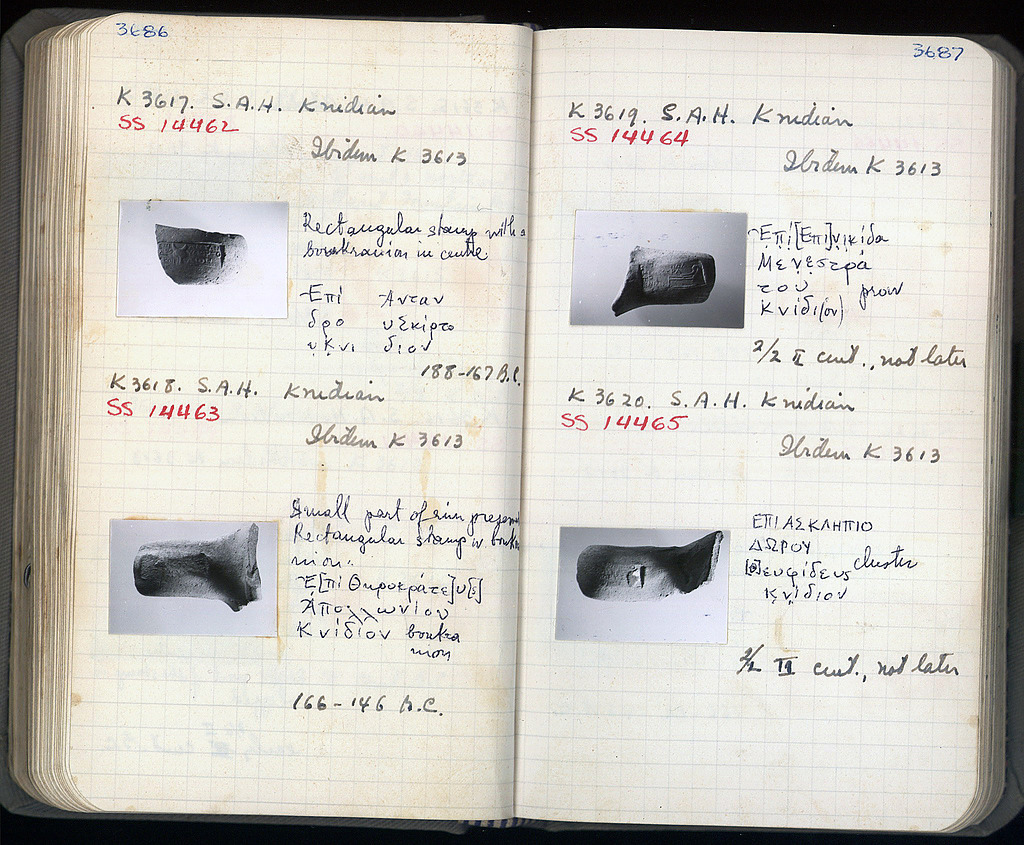 3686
K 3617. S.A.H. Knidian
SS 14462
Ibidem K 3613
Rectangular stamp with a
boukranion in centre
Επί Ανταν
δρο υΣκίρτο
υ Κνι διον
188-167 B.C.
K 3618. S.A.H. Knidian
SS 14463
Ibidem K 3613
Small part of rim preserved
Rectangular stamp w boukra
nion:
Ἐ[πὶ Θηροκράτε]υ[ς]
Ἀπολλωνίου
Κνίδιον boukra
nion
166-146 B.C.
3687
K 3619. S.A.H. Knidian
SS 14464
Ibidem K 3613
Ἐπι[Επι]νικίδα
Μενεστρά
του prow
Κνίδι(ον)
2/2 II cent., not later
K 3620. S.A.H. Knidian
SS 14465
Ibidem K 3613
ΕΠΙ ΑΣΚΛΗΠΙΟ
ΔΩΡΟΥ
[Θ]ευφίδευς cluster
Κνίδιον
2/2 II cent., not later